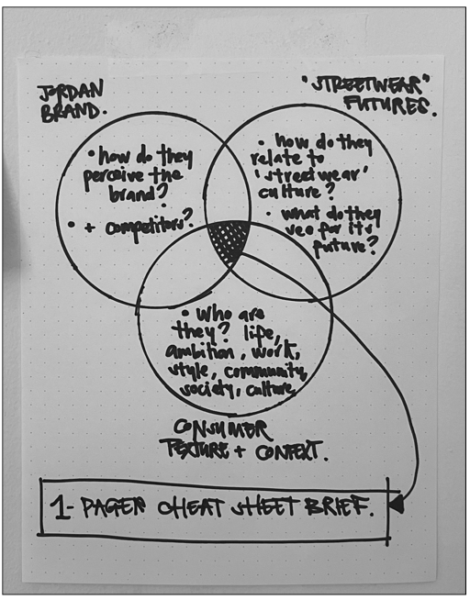 JORDAN
BRAND.
"STREETWEAR"
FUTURES.
• how do they
perceive the
brand?
• + competitors?
• how do they
relate to
'streetwear'
culture?
• what do they
see for its
future?
• Who are
they? life,
ambition, work,
style, community,
society, culture
CONSUMER
TEXTURE + CONTEXT.
1-PAGER CHEAT SHEET BRIEF.